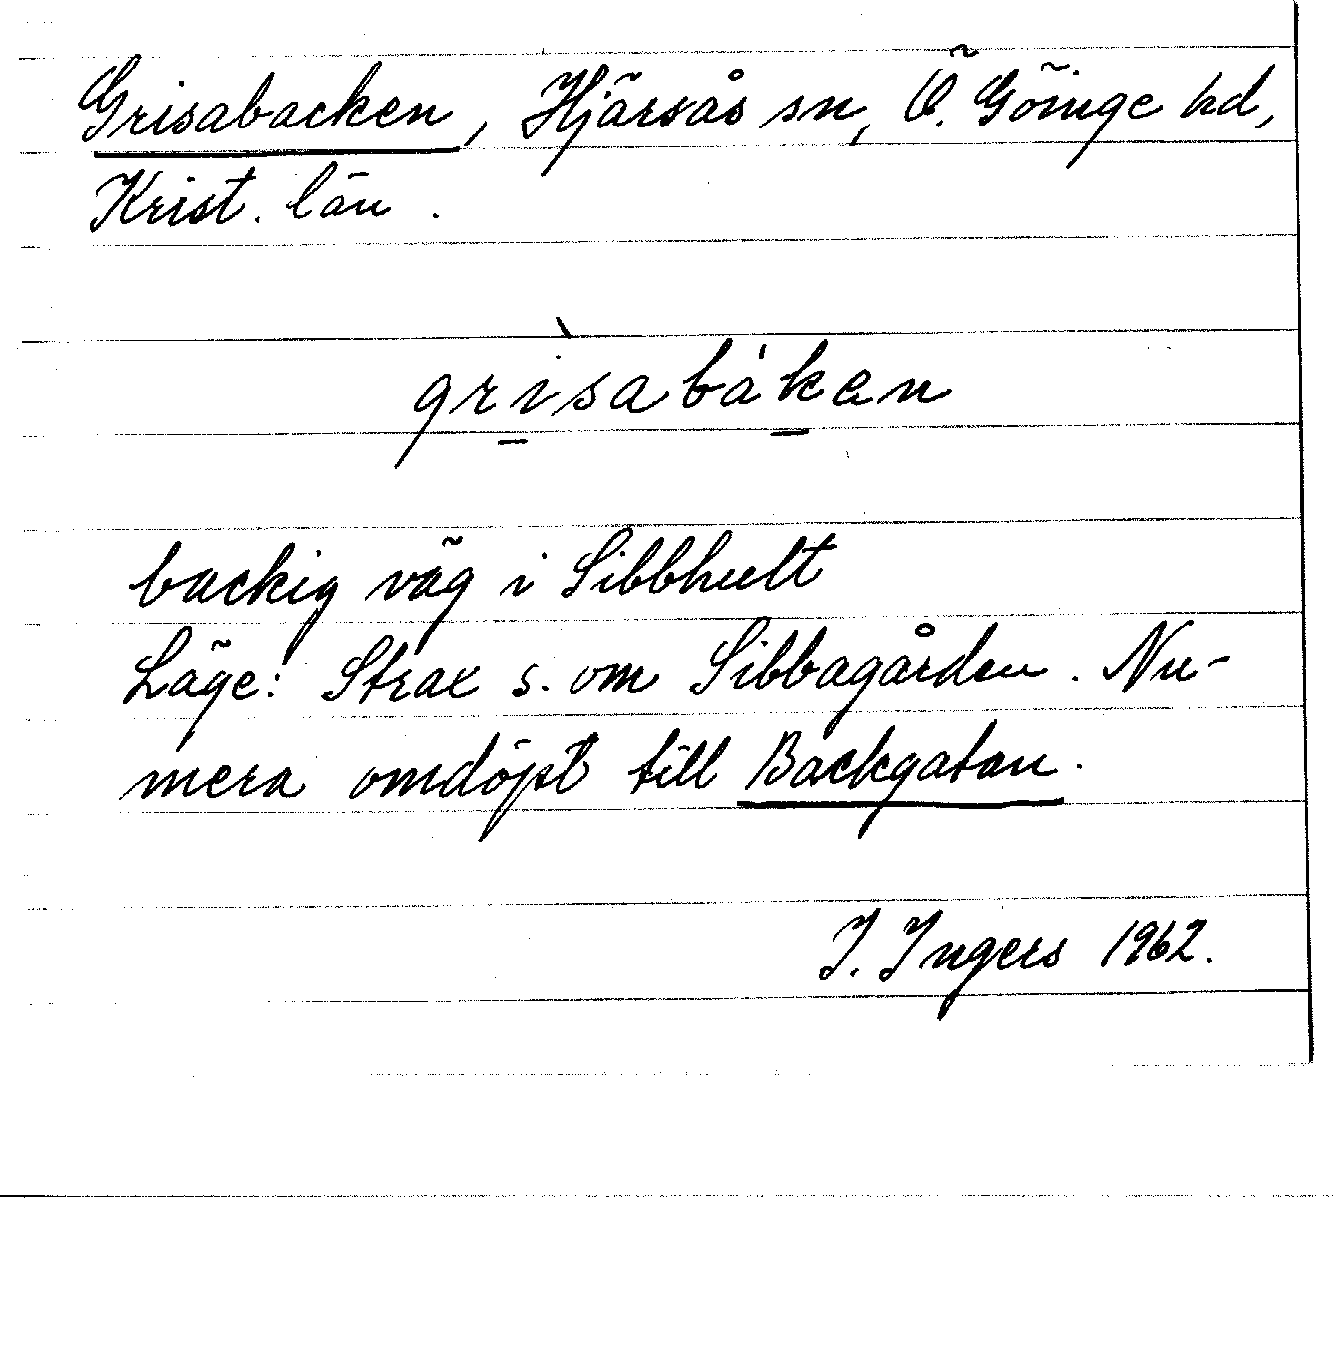 Grisabacken, Hjärsås sn, Ö. Göinge hd,
Krist. län.
grìsabáken
backig väg i Sibbhult
Läge: Strax s. om Sibbagården. Nu-
mera omdöpt till Backgatan.
I. Ingers 1962.